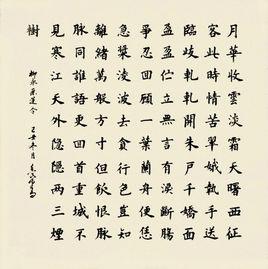 月華收雲淡霜天曙西征
客此時情苦翠娥執手送
臨歧軋軋開朱戶千嬌面
盈盈佇立無言有淚斷腸
爭忍回顧一葉蘭舟便恁
急槳凌波去貪行色豈知
離緒萬般方寸但飲恨脈
脈同誰語更回首重城不
見寒江天外隱隱兩三煙
樹
柳永采蓮令